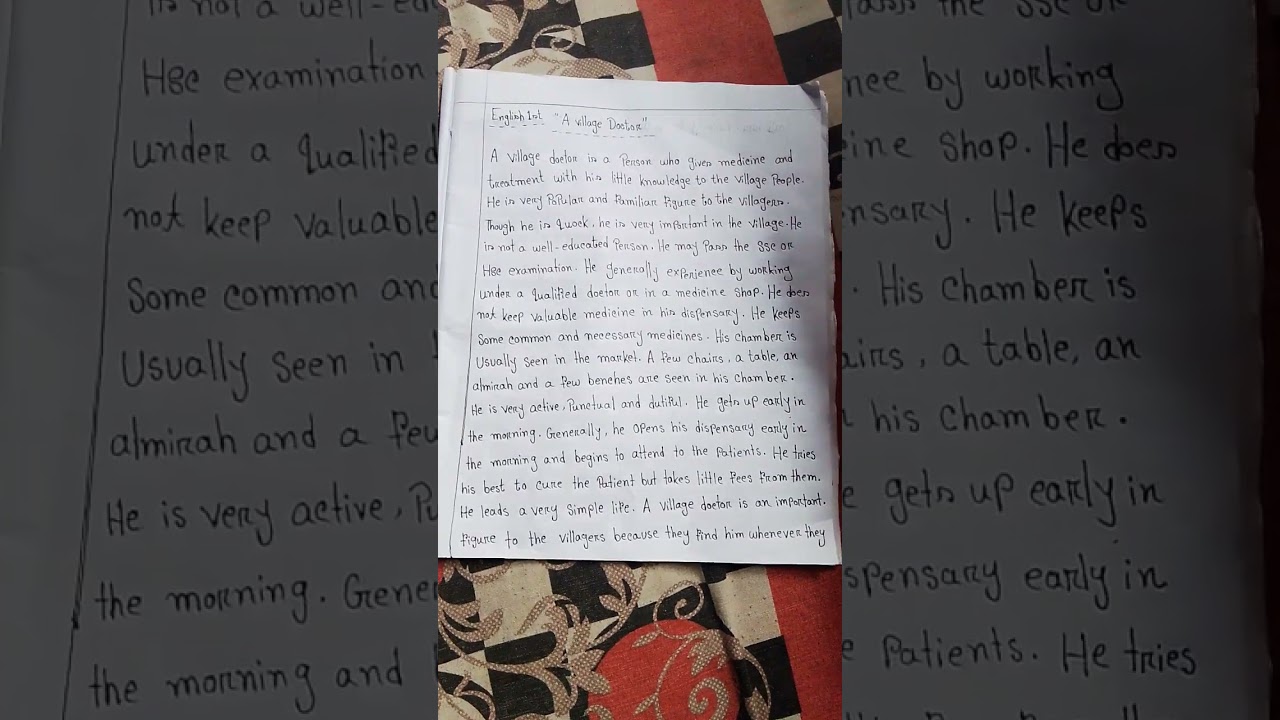 English 1st "A village Doctor"
A village doctor is a Person who gives medicine and
treatment with his little knowledge to the village People.
He is very Popular and familiar figure to the villagers.
Though he is quock, he is very important in the village. He
is not a well-educated Person. He may Pass the SSC or
HSC examination. He generally experience by working
under a qualified doctor or in a medicine shop. He does
not keep valuable medicine in his dispensary. He keeps
Some common and necessary medicines. His chamber is
Usually seen in the market. A few chairs, a table, an
almirah and a few benches are seen in his chamber.
He is very active, Punctual and dutiful. He gets up early in
the morning. Generally, he opens his dispensary early in
the morning and begins to attend to the Patients. He tries
his best to cure the Patient but takes little fees from them.
He leads a very simple life. A village doctor is an important.
figure to the villagers because they find him whenever they